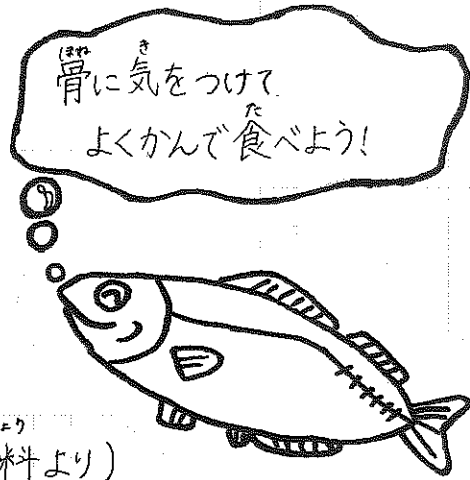 骨に気をつけて
よくかんで食べよう!
料より)